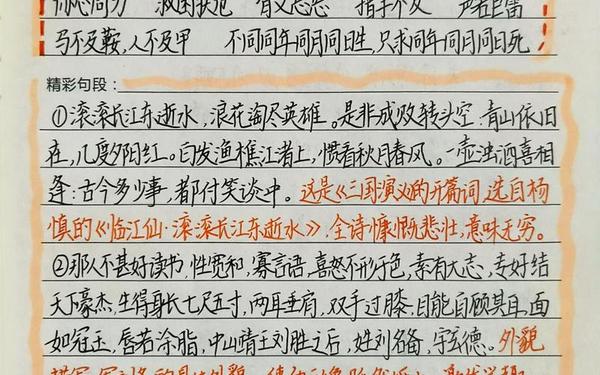 同心同力 救困扶危 有义忘恩 措手不及 声若巨雷
马不及鞍,人不及甲 不同同年同月同日生,只求同年同月同日死
精彩句段:
①滚滚长江东逝水,浪花淘尽英雄。是非成败转头空.青山依旧
在,几度夕阳红。白发渔樵江渚上,惯看秋月春风。一壶浊酒喜相
逢:古今多少事,都付笑谈中。这是《三国演义》的开篇词,选自杨
慎的《临江仙·滚滚长江东逝水》.全诗慷慨悲壮,意味无穷。
②那人不甚好读书,性宽和,寡言语,喜怒不形于色,素有大志,专好结
天下豪杰,生得身长七尺五寸,两耳垂肩,双手过膝.目能自顾其耳,面
如冠玉,唇若涂脂,中山靖王刘胜之后,姓刘名备,字玄德..外貌